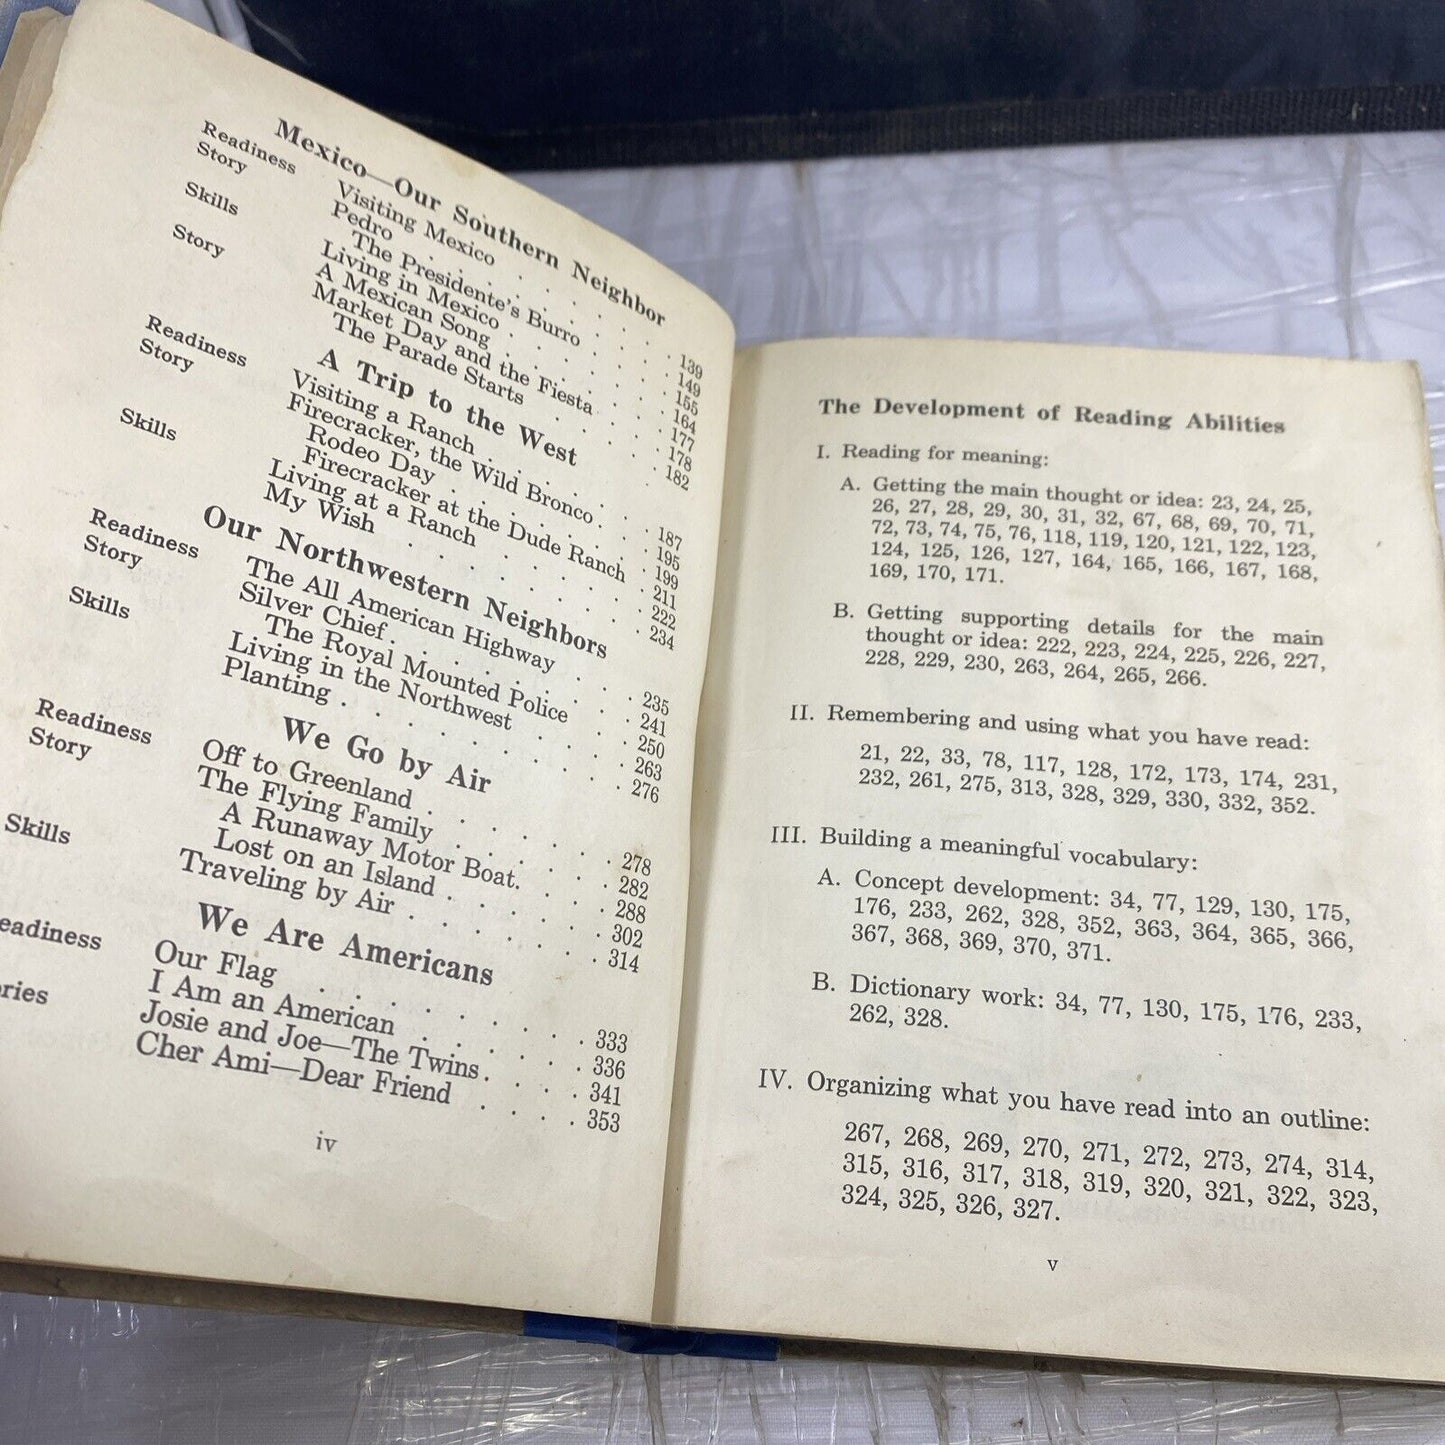 Mexico—Our Southern Neighbor
Readiness Visiting Mexico . . . . . 139
Story Pedro . . . . . . . 149
The Presidente's Burro . . . . 155
Skills Living in Mexico . . . . . 164
A Mexican Song . . . . . . 177
Story Market Day and the Fiesta . . . 178
The Parade Starts . . . . . 182
A Trip to the West
Readiness Visiting a Ranch . . . . . 187
Story Firecracker, the Wild Bronco . . . 195
Rodeo Day . . . . . . 199
Firecracker at the Dude Ranch . . 211
Skills Living at a Ranch . . . . . 222
My Wish . . . . . . . 234
Our Northwestern Neighbors
Readiness The All American Highway . . . 235
Story Silver Chief . . . . . . 241
The Royal Mounted Police . . . 250
Skills Living in the Northwest . . . . 263
Planting . . . . . . . 276
We Go by Air
Readiness Off to Greenland . . . . . 278
Story The Flying Family . . . . . 282
A Runaway Motor Boat . . . . 288
Lost on an Island . . . . . 302
Skills Traveling by Air . . . . . 314
We Are Americans
eadiness Our Flag . . . . . . . 333
I Am an American . . . . . 336
ries Josie and Joe—The Twins . . . . 341
Cher Ami—Dear Friend . . . . 353
iv
The Development of Reading Abilities
I. Reading for meaning:
A. Getting the main thought or idea: 23, 24, 25,
26, 27, 28, 29, 30, 31, 32, 67, 68, 69, 70, 71,
72, 73, 74, 75, 76, 118, 119, 120, 121, 122, 123,
124, 125, 126, 127, 164, 165, 166, 167, 168,
169, 170, 171.
B. Getting supporting details for the main
thought or idea: 222, 223, 224, 225, 226, 227,
228, 229, 230, 263, 264, 265, 266.
II. Remembering and using what you have read:
21, 22, 33, 78, 117, 128, 172, 173, 174, 231,
232, 261, 275, 313, 328, 329, 330, 332, 352.
III. Building a meaningful vocabulary:
A. Concept development: 34, 77, 129, 130, 175,
176, 233, 262, 328, 352, 363, 364, 365, 366,
367, 368, 369, 370, 371.
B. Dictionary work: 34, 77, 130, 175, 176, 233,
262, 328.
IV. Organizing what you have read into an outline:
267, 268, 269, 270, 271, 272, 273, 274, 314,
315, 316, 317, 318, 319, 320, 321, 322, 323,
324, 325, 326, 327.
v